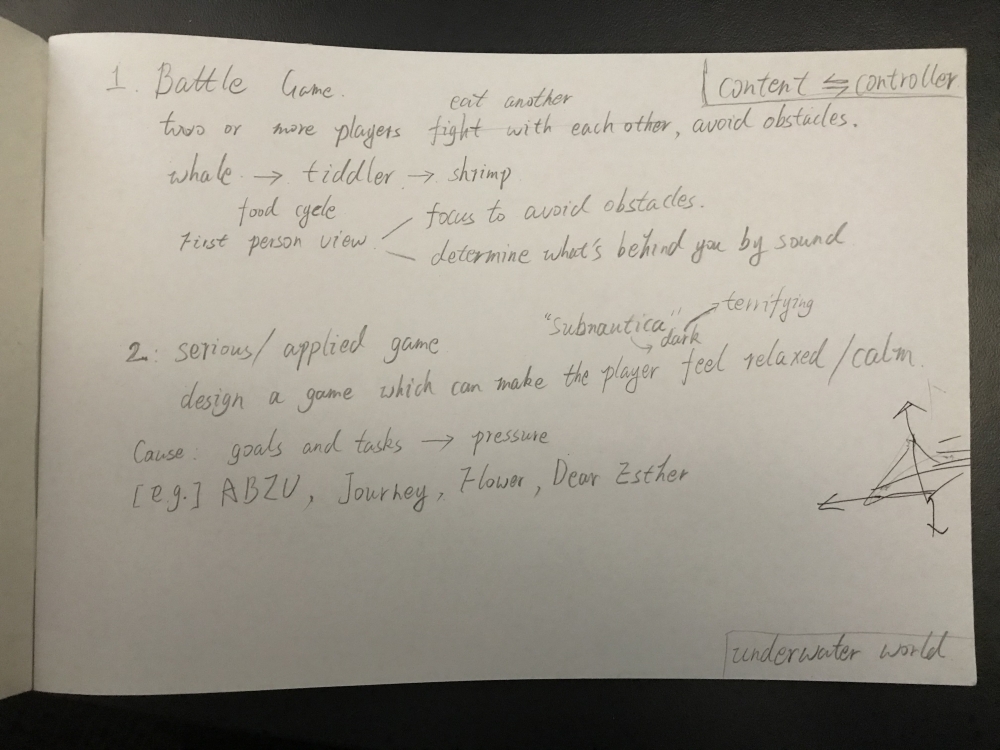 content ⇋ controller
1. Battle Game.
eat another
two or more players fight with each other, avoid obstacles.
whale → tiddler → shrimp
food cycle
First person view
focus to avoid obstacles.
determine what's behind you by sound
"Subnautica"
dark
terrifying
2: serious/ applied game
design a game which can make the player feel relaxed /calm.
Cause: goals and tasks → pressure
[e.g.] ABZU, Journey, Flower, Dear Esther
underwater world